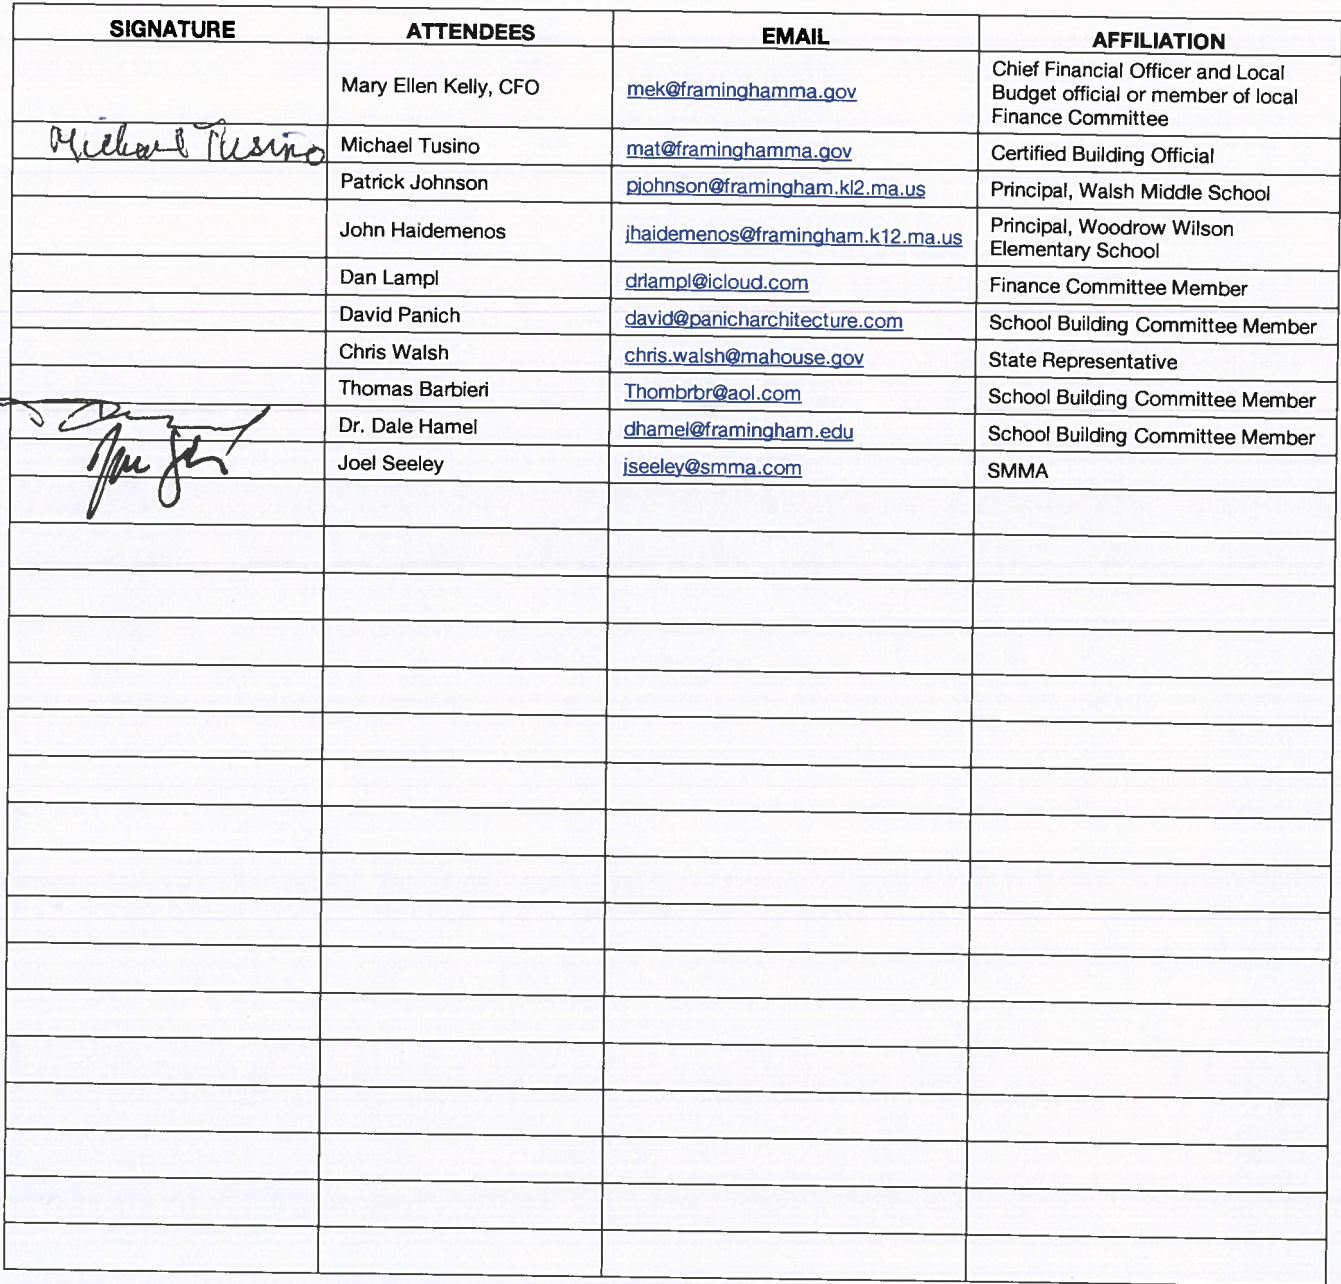 SIGNATURE ATTENDEES EMAIL AFFILIATION
Mary Ellen Kelly, CFO mek@framinghamma.gov Chief Financial Officer and Local
Budget official or member of local
Finance Committee
Michael Tusino Michael Tusino mat@framinghamma.gov Certified Building Official
Patrick Johnson pjohnson@framingham.kl2.ma.us Principal, Walsh Middle School
John Haidemenos jhaidemenos@framingham.k12.ma.us Principal, Woodrow Wilson
Elementary School
Dan Lampl drlampl@icloud.com Finance Committee Member
David Panich david@panicharchitecture.com School Building Committee Member
Chris Walsh chris.walsh@mahouse.gov State Representative
Thomas Barbieri Thombrbr@aol.com School Building Committee Member
Dr. Dale Hamel dhamel@framingham.edu School Building Committee Member
Joel Seeley jseeley@smma.com SMMA